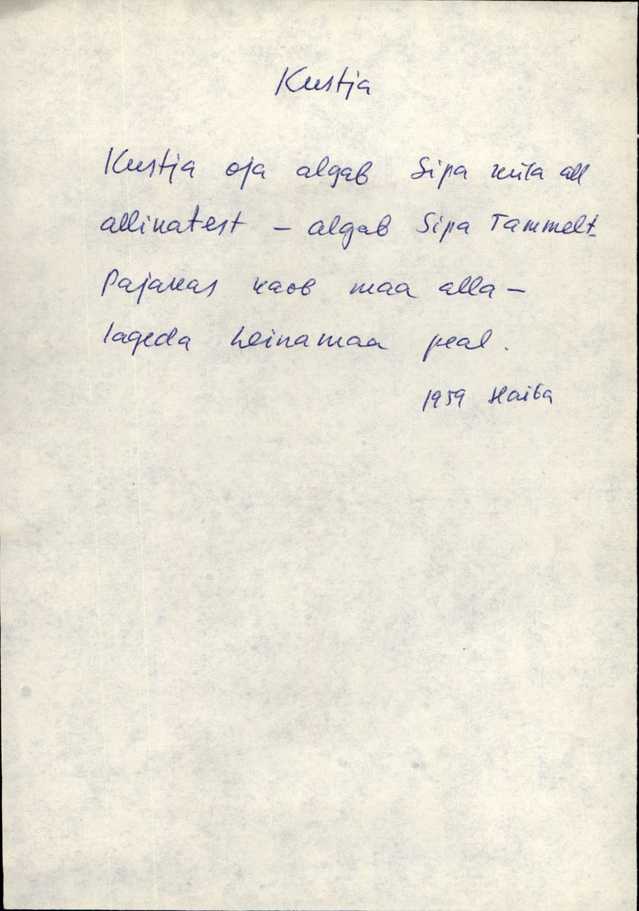 Kustja
Kustja oja algab Sipa küla all
allikatest - algab Sipa Tammelt.
Pajakas kaob maa alla -
lageda heinamaa peal.
1959 Haiba